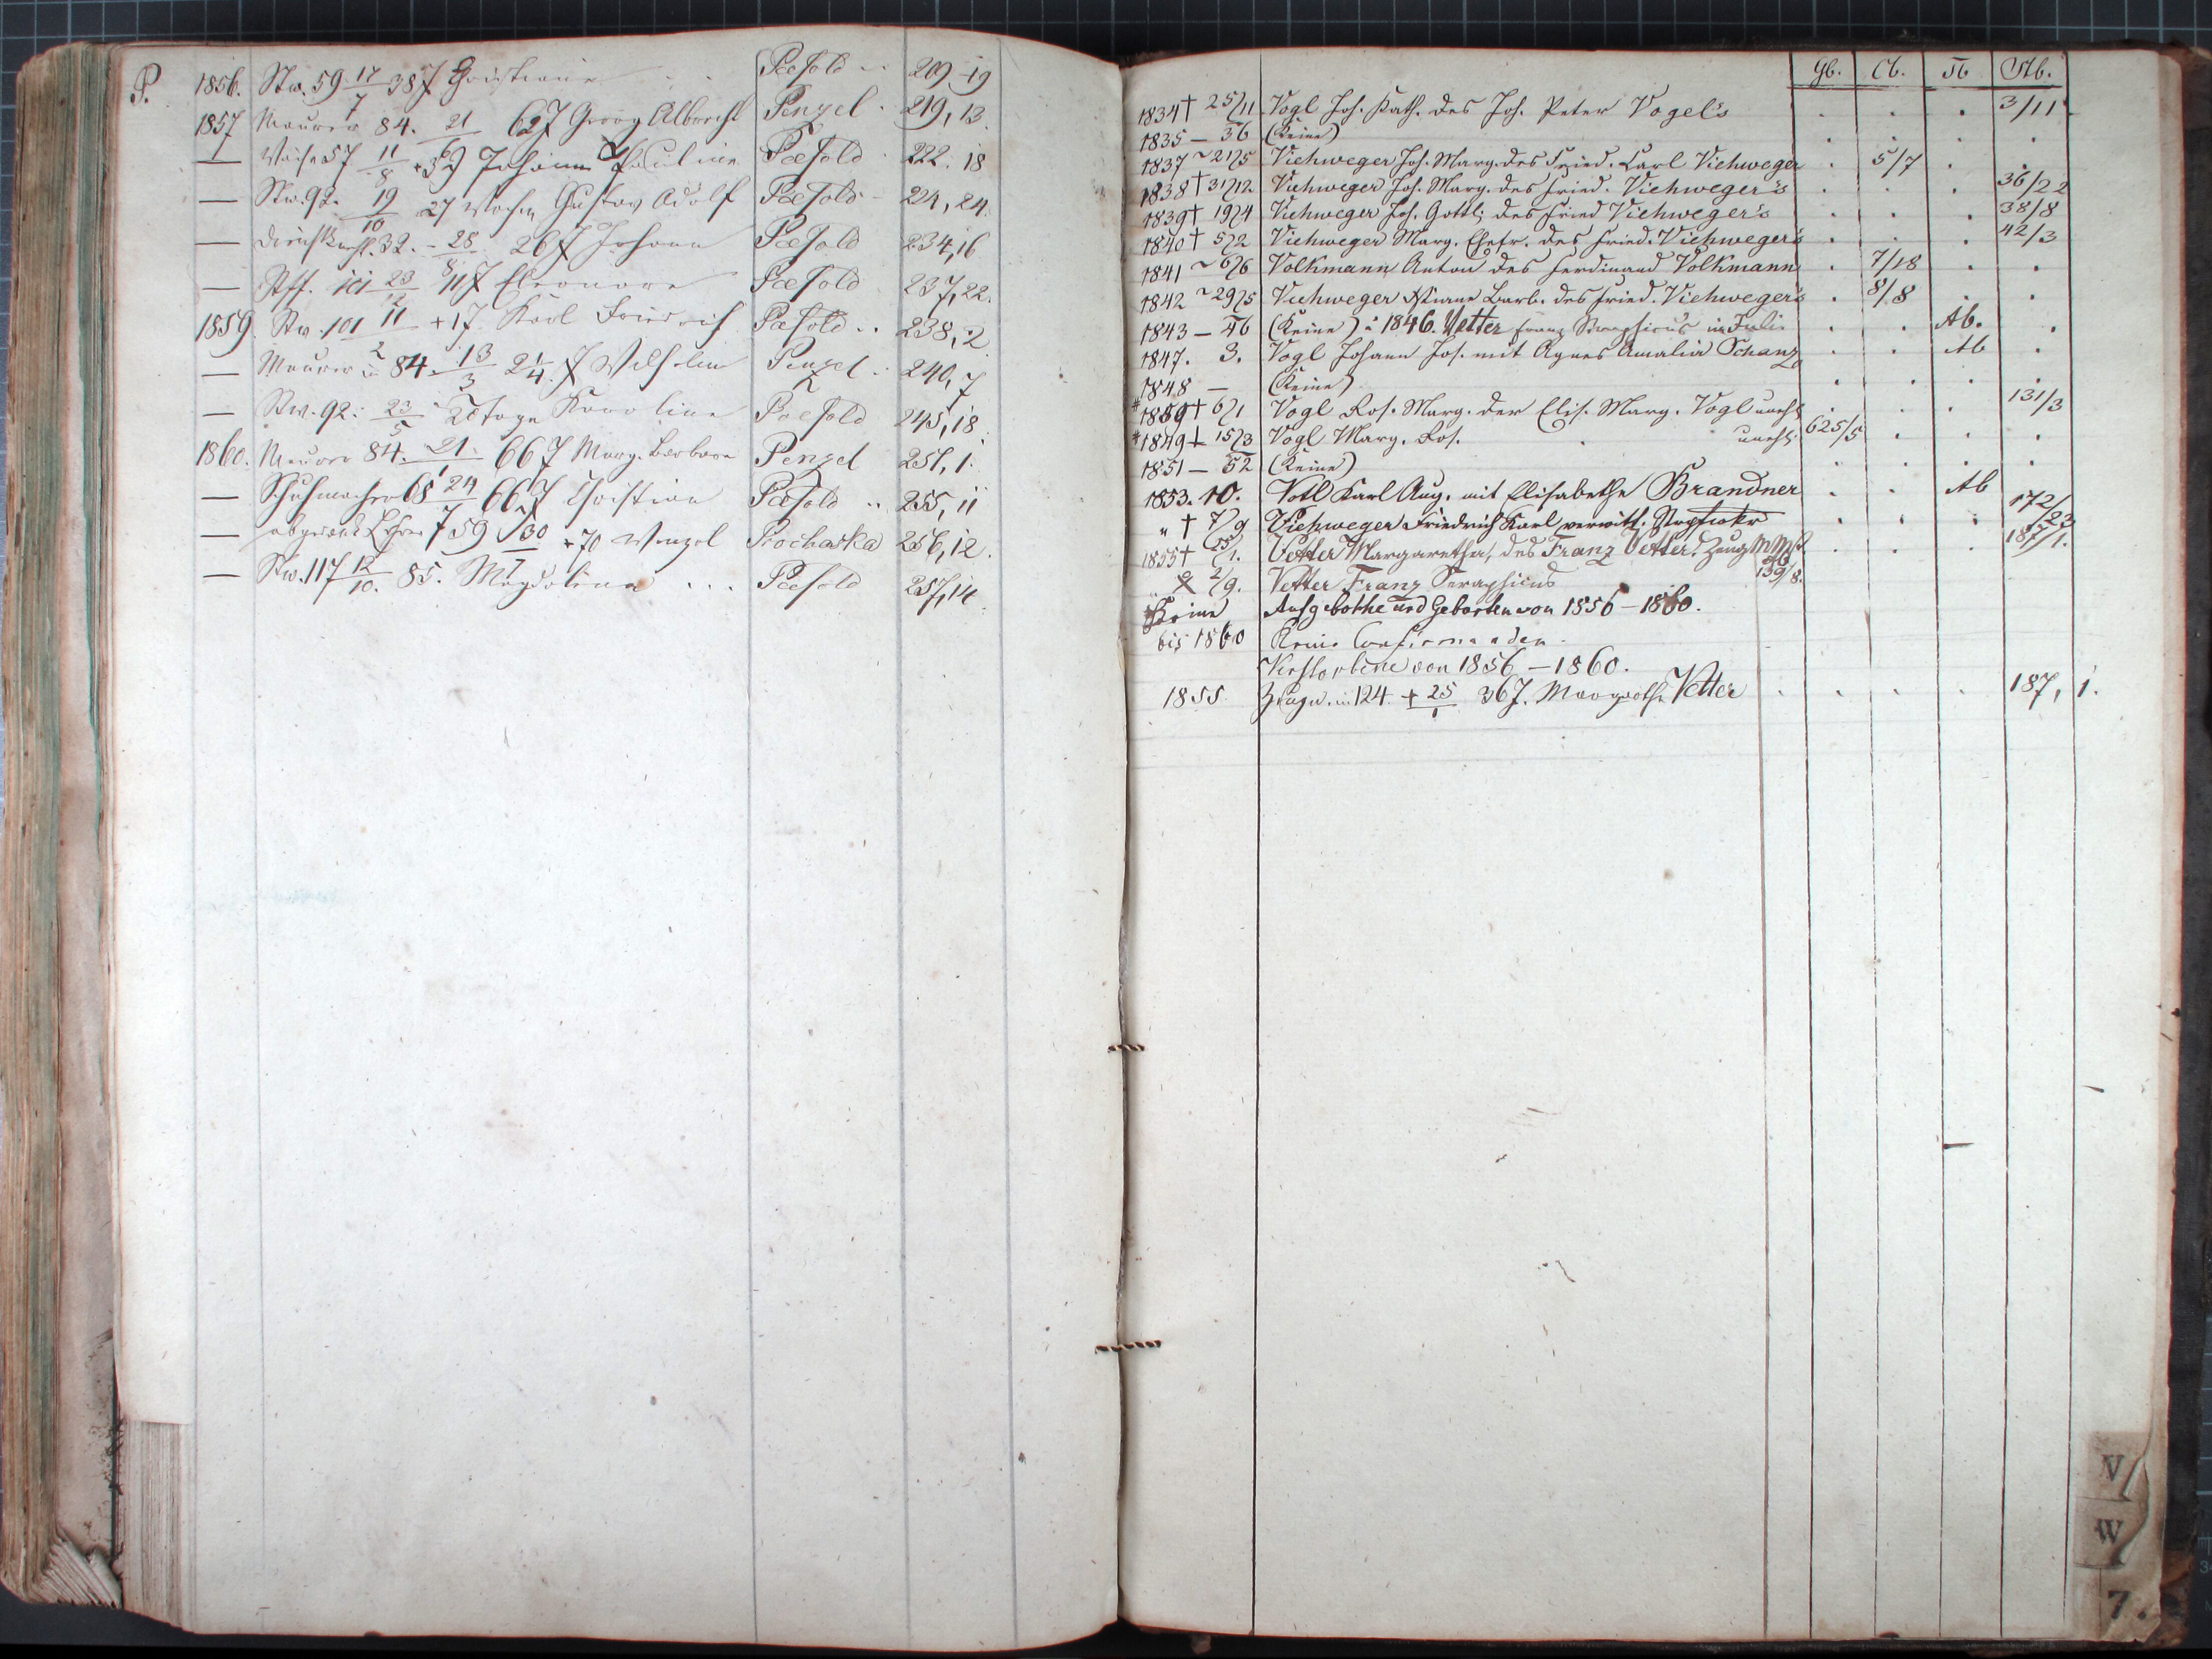 P.
1856. Stw. 59 17/7 38 J Christiane Paesold 209, 19
1857 Maurer 84. 21/6 62 J Georg Albrecht Penzel 219, 13.
— 57 11/8 Johann Paulina Paesold 222. 18
— Stw. 92. 19/10 27 Wochen Gustav Adolf Paesold 224, 24.
— 32. 28 26 J Johann Paesold 234, 16
— 101 23/12 Eleonore Paesold 237, 22.
1859. Stw. 101 11/2 + 17 Karl Friedrich Paesold 238, 2
— Maurer in 84. 13/3 2 1/4 J Wilhelm Penzel 240, 7
— Stw. 92. 23/5 Tage Karoline Paesold 245, 18
1860. Maurer 84. 21/1 66 J Marg. Barbara Penzel 251, 1.
— Schuhmacher 68 24 66 J Christian Paesold 255, 11
— 59 30 70 Wenzel Prochaska 256, 12.
— Stw. 117 12/10. 85. Magdalena Paesold 257, 14.
Gb. Cb. Tb Stb.
1834 † 25/11 Vogl Joh. Kath. des Joh. Peter Vogel's 3/11.
1835 – 36 (Keine)
1837 ~ 21/5 Viehweger Joh. Marg. des Fried. Carl Viehweger 5/7
1838 † 31/12 Viehweger Joh. Marg. des Fried. Viehweger's 36/22
1839 † 19/4 Viehweger Joh. Gottl. des Fried Viehweger's 38/8
1840 † 5/2 Viehweger Marg. Ehefr. des Fried. Viehweger's 42/3
1841 ~ 6/6 Volkmann Anton des Ferdinand Volkmann 7/18
1842 ~ 29/5 Viehweger Barb. des Fried. Viehweger's 8/8
1843 – 46 (Keine) 1846. Vetter Franz Seraphicus in Juli. Ab.
1847. 3. Vogl Johann Jos. mit Agnes Amalia Schanz Ab
1848 — (Keine)
1850 † 6/1 Vogl Ros. Marg. der Elis. Marg. Vogl unehl 131/3
1849 + 15/3 Vogl Marg. Ros. unehl. 625/5
1851 – 52 (Keine)
1853. 10. Votl Karl Aug. mit Elisabetha Brandner Ab
" † 7/9 Viehweger Friedrich Karl verwitt. 172/23
1855 † 25/1. Vetter Margaretha, des Franz Vetter, Zeug 187/1.
" 2/9. Vetter Franz Seraphicus 139/8.
Keine Aufgebothe und Geborten von 1856 – 1860.
bis 1860 Keine Confirmanden.
Verstorbene von 1856 – 1860.
1855 in 124. + 25/1 36 J. Margareth Vetter 187, 1.
V
W
7.